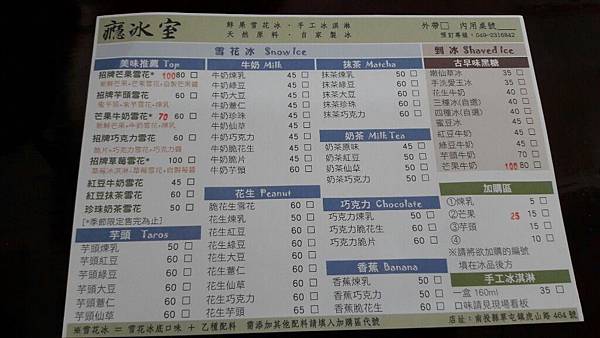 癮冰室
鮮果雪花冰・手工冰淇淋
天然原料・自家製冰
外帶□ 內用桌號
預訂專線：049-2316842
雪花冰 Snow Ice
美味推薦 Top
招牌芒果雪花* 100 80 □
招牌芋頭雪花 60 □
芒果牛奶雪花* 70 60 □
招牌巧克力雪花 60 □
脆片+巧克力雪花+巧克力醬
招牌草莓雪花* 100 □
草莓冰淇淋+草莓雪花+自製莓醬
紅豆牛奶雪花 45 □
紅豆抹茶雪花 60 □
珍珠奶茶雪花 50 □
[*季節限定售完為止]
芋頭 Taros
芋頭煉乳 50 □
芋頭紅豆 60 □
芋頭綠豆 60 □
芋頭大豆 60 □
芋頭薏仁 60 □
芋頭花生 60 □
牛奶 Milk
牛奶煉乳 45 □
牛奶紅豆 45 □
牛奶大豆 45 □
牛奶薏仁 45 □
牛奶珍珠 45 □
牛奶仙草 45 □
牛奶巧克力 45 □
牛奶脆片 45 □
牛奶芋頭 60 □
花生 Peanut
脆花生雪花 60 □
花生煉乳 50 □
花生紅豆 60 □
花生綠豆 60 □
花生大豆 60 □
花生薏仁 60 □
花生仙草 60 □
花生巧克力 60 □
花生芋頭 65 □
抹茶 Matcha
抹茶煉乳 50 □
抹茶紅豆 60 □
抹茶大豆 60 □
抹茶珍珠 60 □
抹茶巧克力 60 □
奶茶 Milk Tea
奶茶原味 40 □
奶茶紅豆 50 □
奶茶仙草 50 □
奶茶巧克力 50 □
巧克力 Chocolate
巧克力煉乳 50 □
巧克力脆花生 60 □
巧克力脆片 60 □
香蕉 Banana
香蕉煉乳 50 □
香蕉巧克力 60 □
香蕉脆花生 60 □
剉冰 Shaved Ice
古早味黑糖
嫩仙草冰 35 □
手洗愛玉冰 35 □
花生牛奶 40 □
三種冰(自選) 40 □
四種冰(自選) 45 □
蜜豆冰 45 □
紅豆牛奶 45 □
綠豆牛奶 45 □
芋頭牛奶 70 □
芒果牛奶 100 80 □
加購區
①煉乳 5 □
②芒果 25 15 □
③芋頭 15 □
④ 10 □
※請將欲加購的編號
填在冰品後方
手工冰淇淋
一盒 160ml 35 □
口味請見現場看板
※雪花冰 = 雪花冰底口味 + 乙種配料 需添加其他配料請填入加購區代號
店址：南投縣草屯鎮虎山路 464 號